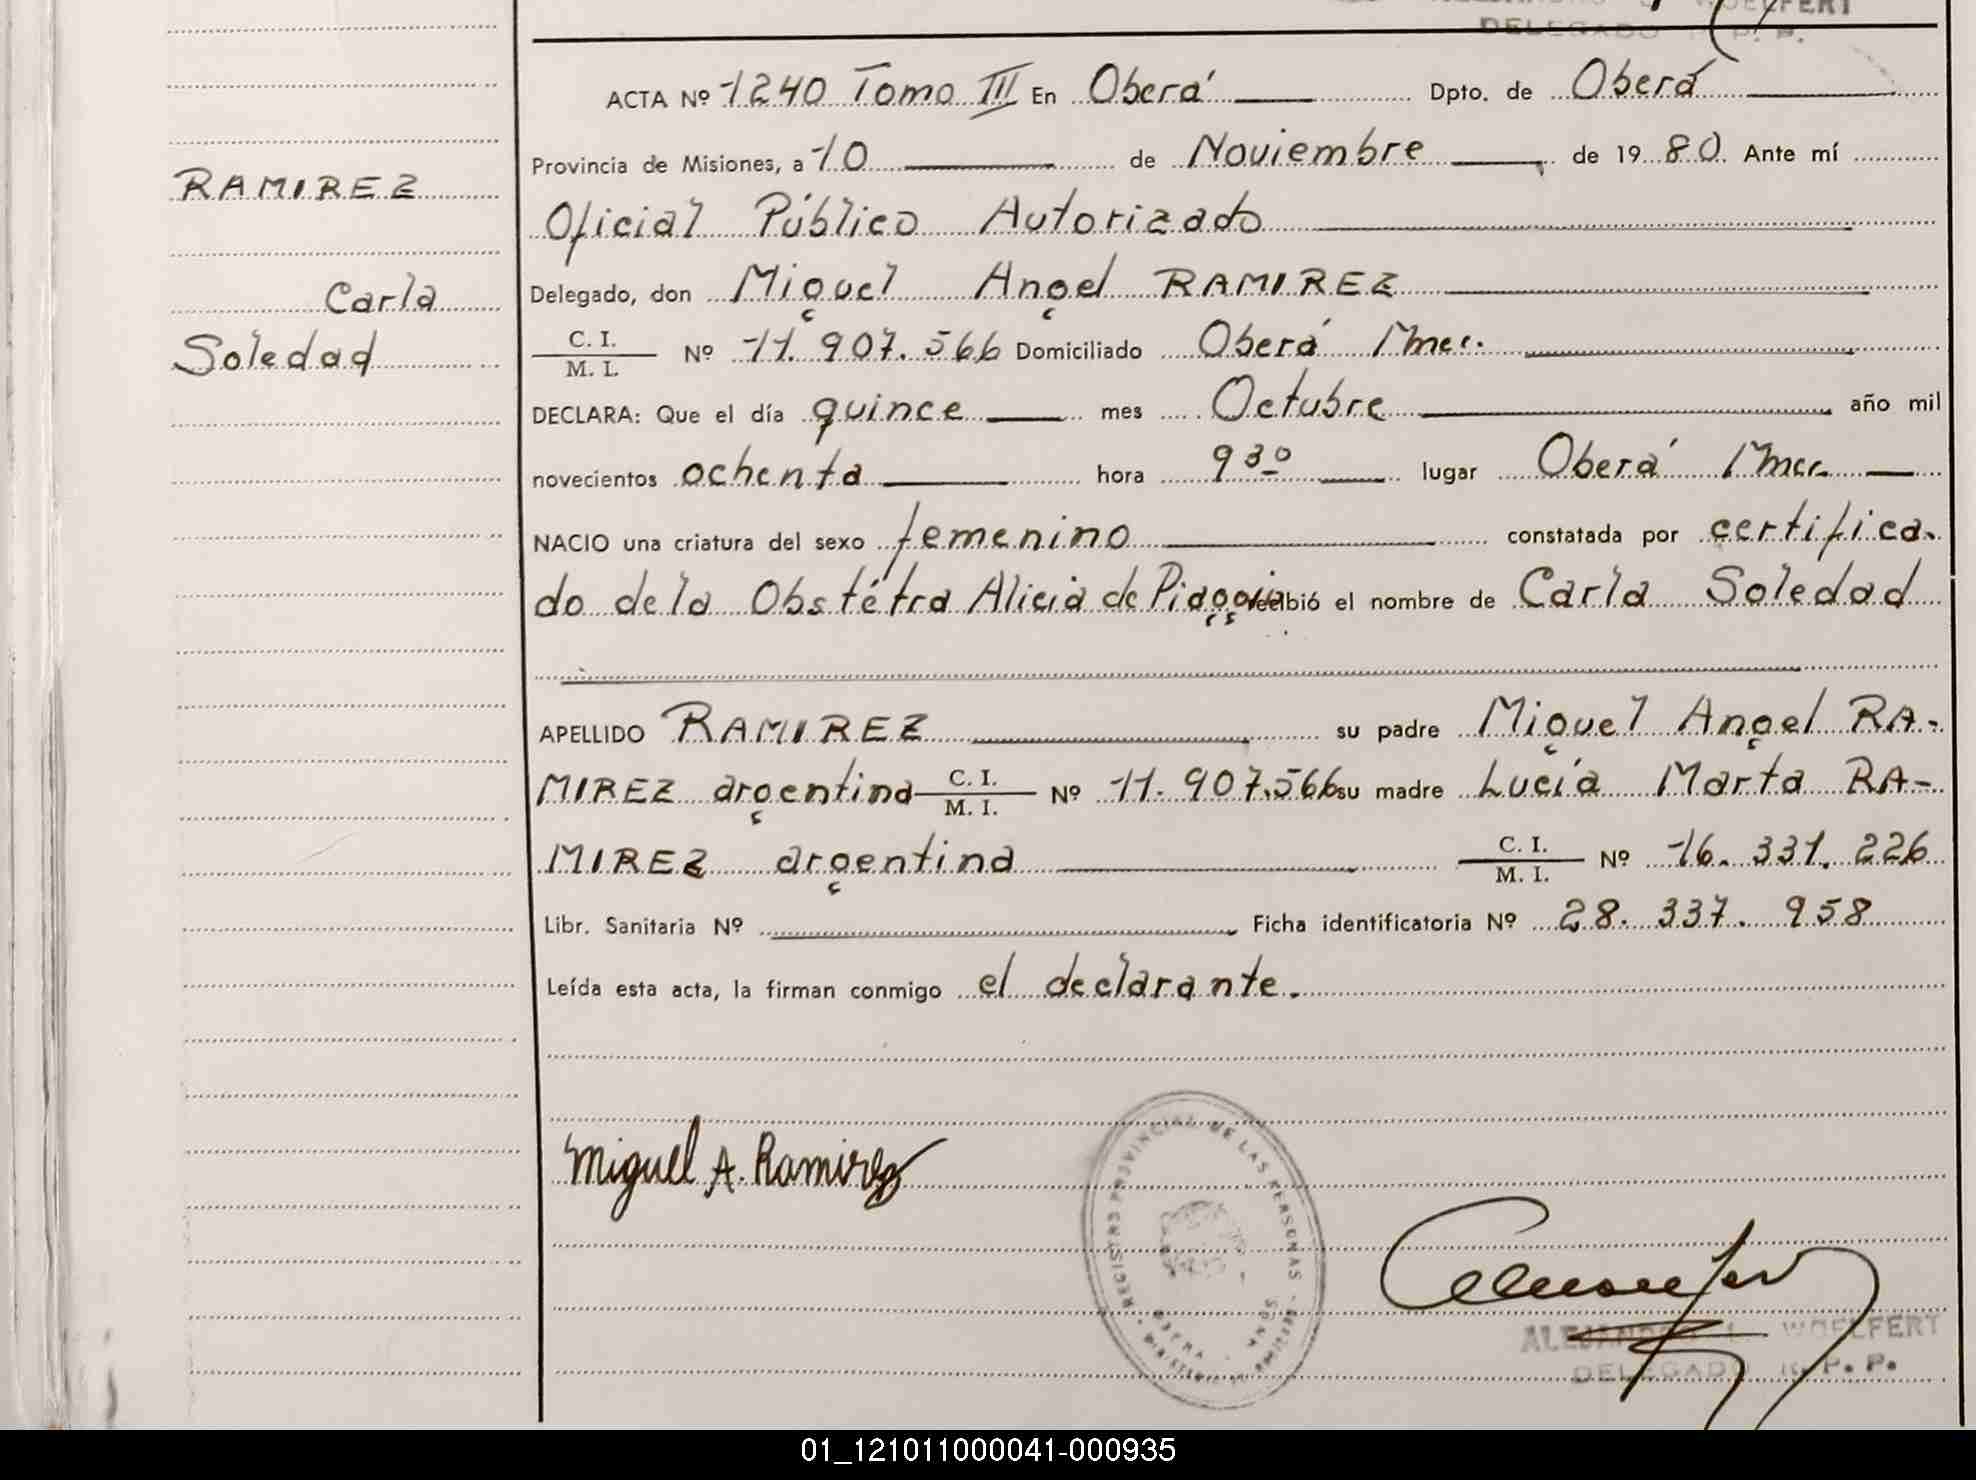 WOELFERT
DELEGADO R. P. P.
ACTA Nº 1240 Tomo III En Oberá Dpto. de Oberá
Provincia de Misiones, a 10 de Noviembre de 1980. Ante mí
RAMIREZ
Oficial Público Autorizado
Carla
Delegado, don Miguel Angel RAMIREZ
Soledad
C. I.
M. I. Nº 11.907.566 Domiciliado Oberá
DECLARA: Que el día quince mes Octubre año mil
novecientos ochenta hora 9 30 lugar Oberá
NACIO una criatura del sexo femenino constatada por certifica-
do de la Obstétra Alicia de Piaggio recibió el nombre de Carla Soledad
APELLIDO RAMIREZ su padre Miguel Angel RA-
MIREZ argentina C. I. M. I. Nº 11.907.566 su madre Lucía Marta RA-
MIREZ argentina C. I. M. I. Nº 16.331.226
Libr. Sanitaria Nº Ficha identificatoria Nº 28.337.958
Leída esta acta, la firman conmigo el declarante.
Miguel A. Ramirez
REGISTRO PROVINCIAL DE LAS PERSONAS
ALEJANDRO WOELFERT
DELEGADO R. P. P.
01_121011000041-000935